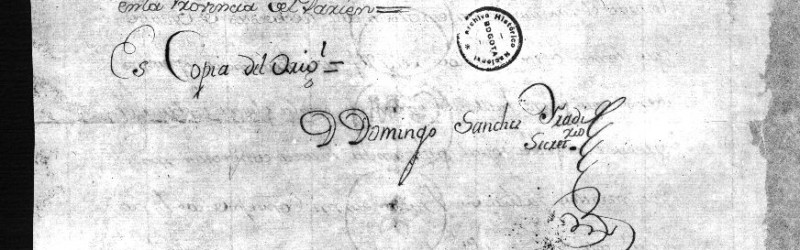 en la Provincia del Darien =
Archivo Histórico Nacional
BOGOTA
Es Copia del Orig.l =
D Domingo Sanchez
Secret.